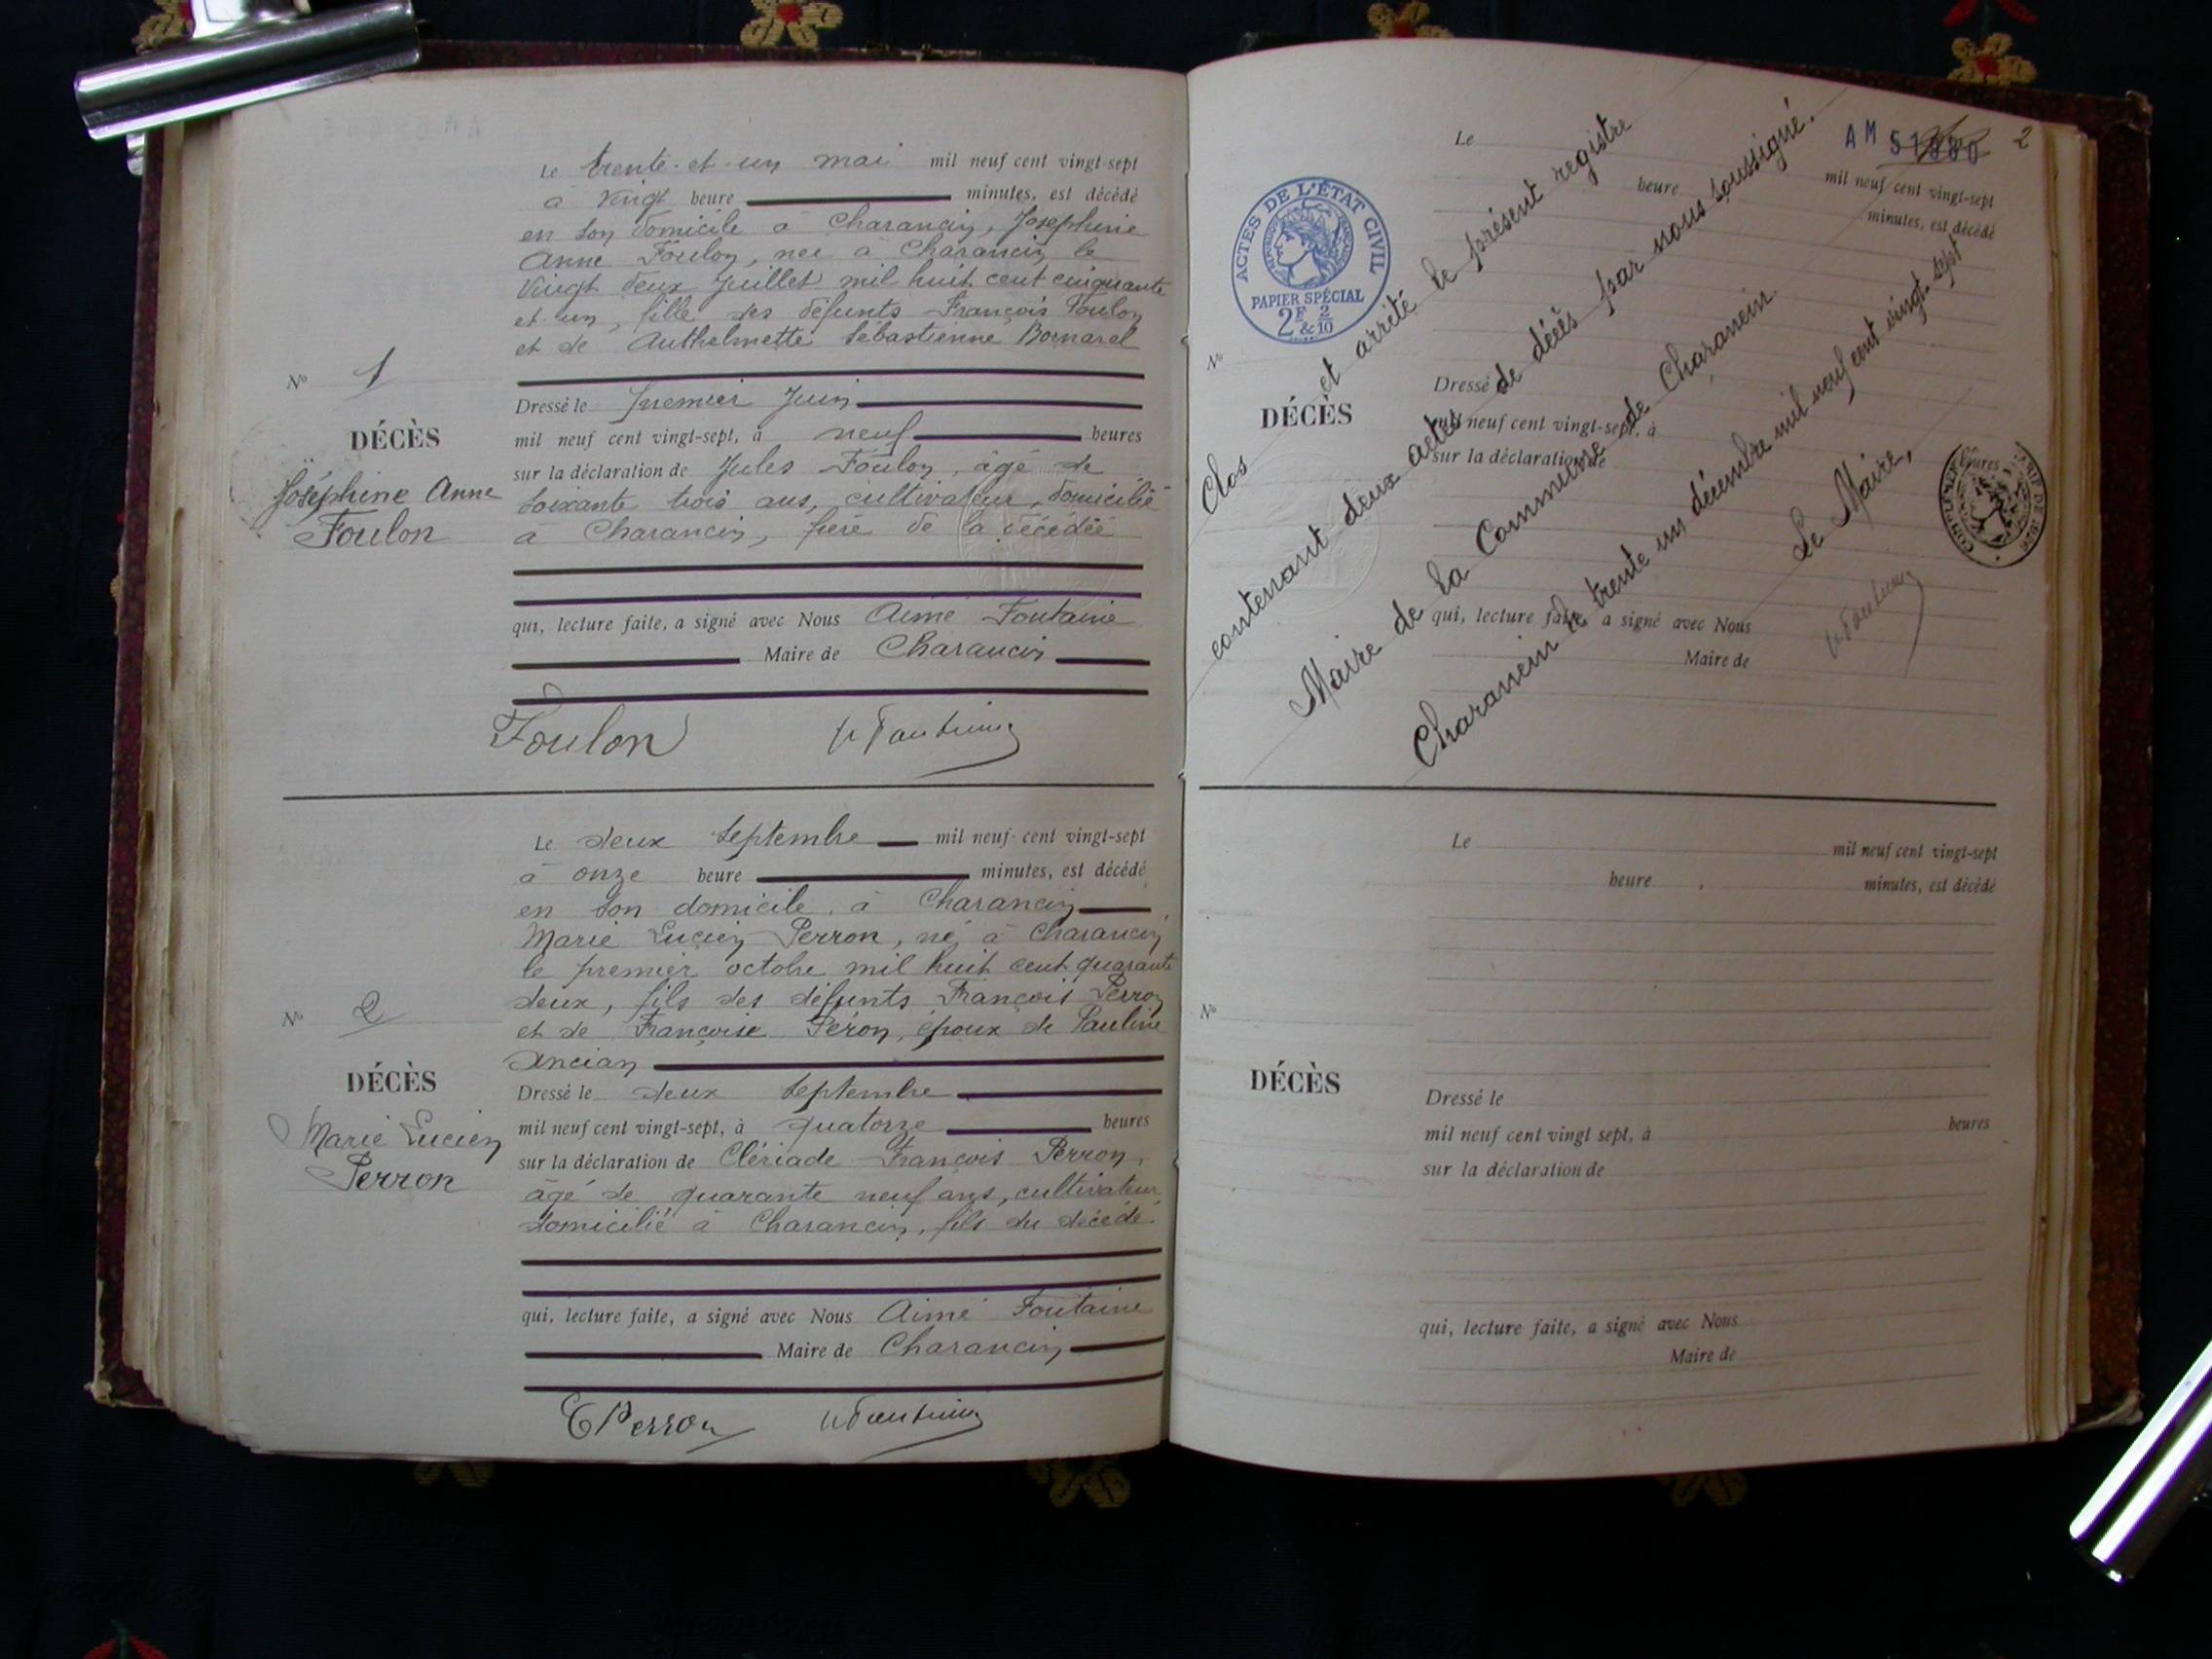 Le trente-et-un mai mil neuf cent vingt-sept
à vingt heure minutes, est décédé
en son domicile à Charancin, Josephine
Anne Foulon, neé à Charancin le
vingt deux Juillet mil huit cent cinquante
et-un, fille des défunts François Foulon
et de Anthelmette Sébastienne Bornarel
N° 1
DÉCÈS
Joséphine Anne
Foulon
Dressé le premier Juin
mil neuf cent vingt-sept, à neuf heures
sur la déclaration de Jules Foulon, âgé de
soixante trois ans, cultivateur, domicilié
à Charancin, frère de la décédée
qui, lecture faite, a signé avec Nous Aimé Fontaine
Maire de Charancin
Foulon
Le deux Septembre mil neuf cent vingt-sept
à onze heure minutes, est décédé
en son domicile, à Charancin
Marie Lucien Perron, né à Charancin
le premier octobre mil huit cent quarante
deux, fils des défunts François Perron
et de Françoise Péron, époux de Pauline
Ancian
N° 2
DÉCÈS
Marie Lucien
Perron
Dressé le deux Septembre
mil neuf cent vingt-sept, à quatorze heures
sur la déclaration de Clériade François Perron,
âgé de quarante neuf ans, cultivateur
domicilié à Charancin, fils du décédé.
qui, lecture faite, a signé avec Nous Aimé Fontaine
Maire de Charancin
C Perron
AM 2
Le mil neuf cent vingt-sept
heure minutes, est décédé
ACTES DE L'ÉTAT CIVIL
PAPIER SPÉCIAL
2F 2/10
&
N°
DÉCÈS
Dressé
mil neuf cent vingt-sept, à heures
sur la déclaration de
qui, lecture faite, a signé avec Nous
Maire de
Clos et arrêté le présent registre
contenant deux actes de décès par nous soussigné.
Maire de la Commune de Charancin.
Charancin le trente un décembre mil neuf cent vingt-sept
Le Maire,
Le mil neuf cent vingt-sept
heure minutes, est décédé
N°
DÉCÈS
Dressé le
mil neuf cent vingt sept, à heures
sur la déclaration de
qui, lecture faite, a signé avec Nous
Maire de